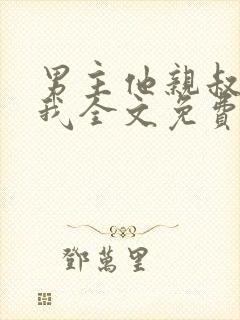 男主他親叔
我全文免費
鄧萬里